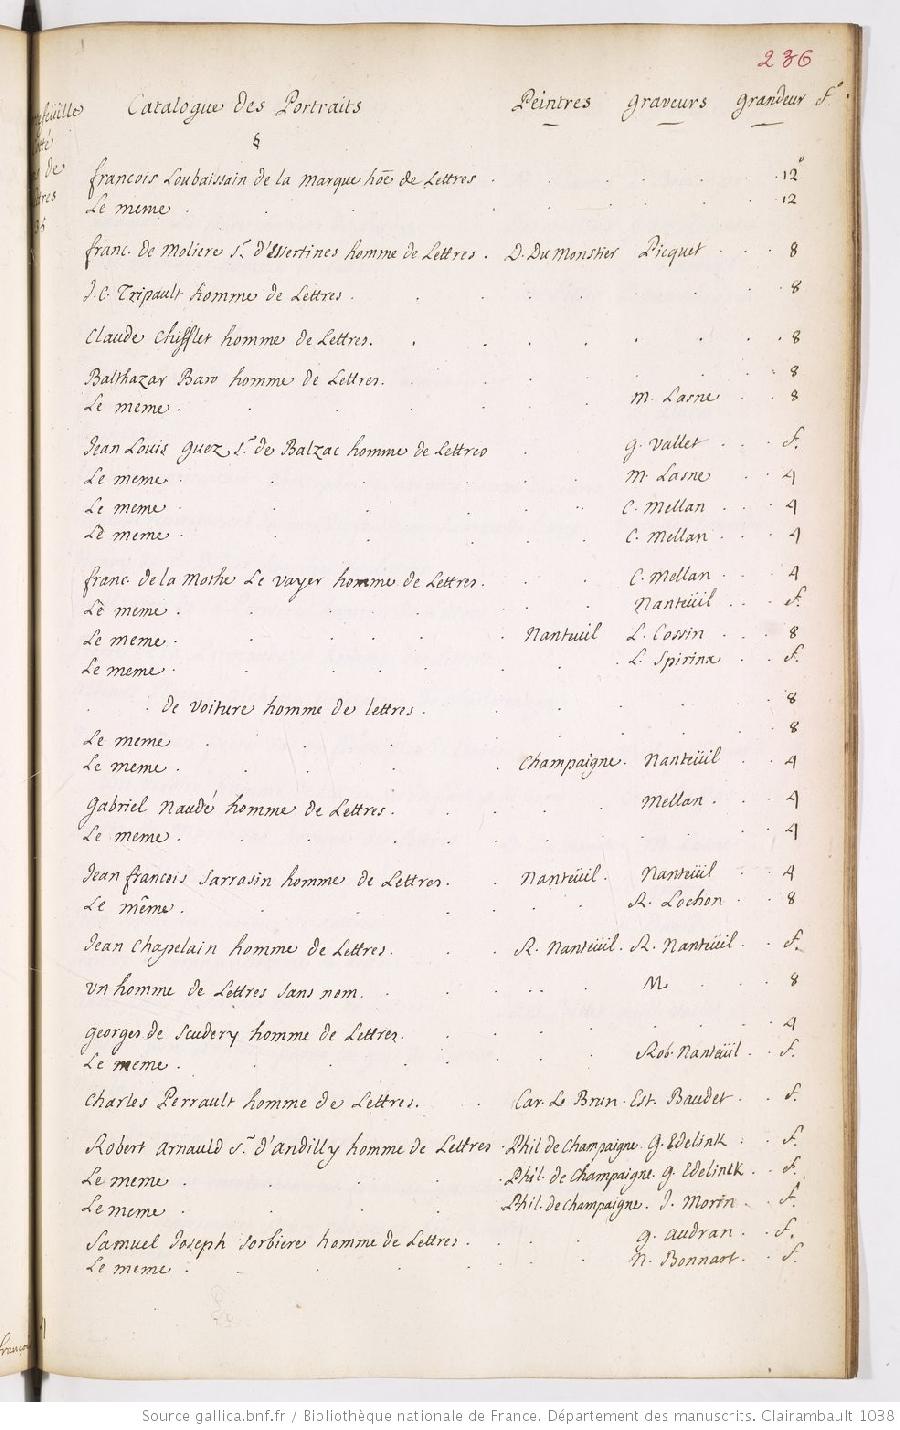 236
Catalogue des Portraits Peintres Graveurs Grandeur f.°
§
francois Loubaissain de la marque hoē de Lettres 12°
Le meme 12
franc. de Moliere Sr. d'Essertines homme de Lettres D. Du Monstier Picquet 8
J. C. Tripault homme de Lettres 8
Claude Chifflet homme de Lettres 8
Balthazar Baro homme de Lettres 8
Le meme M. Lasne 8
Jean Louis Guez Sr. de Balzac homme de Lettres G. Vallet f.
Le meme M. Lasne 4
Le meme C. Mellan 4
Le meme C. Mellan 4
franc. de la Mothe Le Vayer homme de Lettres C. Mellan 4
Le meme Nanteüil f.
Le meme Nanteuil L. Cossin 8
Le meme L. Spirinx f.
de Voiture homme de lettres 8
Le meme 8
Le meme Champaigne Nanteüil 4
Gabriel Naudé homme de Lettres Mellan 4
Le meme 4
Jean francois Sarrasin homme de Lettres Nanteüil Nanteüil 4
Le même R. Lochon 8
Jean Chapelain homme de Lettres R. Nanteüil R. Nanteüil f.
Un homme de Lettres sans nom M. 8
Georges de Scudery homme de Lettres 4
Le meme Rob. Nanteüil f.
Charles Perrault homme de Lettres Car. Le Brun Est. Baudet f.
Robert Arnauld Sr. d'Andilly homme de Lettres Phil de Champaigne G. Edelink f.
Le meme Phil. de Champaigne G. Edelinck f.
Le meme Phil. de champaigne J. Morin f.
Samuel Joseph Sorbiere homme de Lettres G. Audran f.
Le meme N. Bonnart f.
Source gallica.bnf.fr / Bibliothèque nationale de France. Département des manuscrits. Clairambault 1038